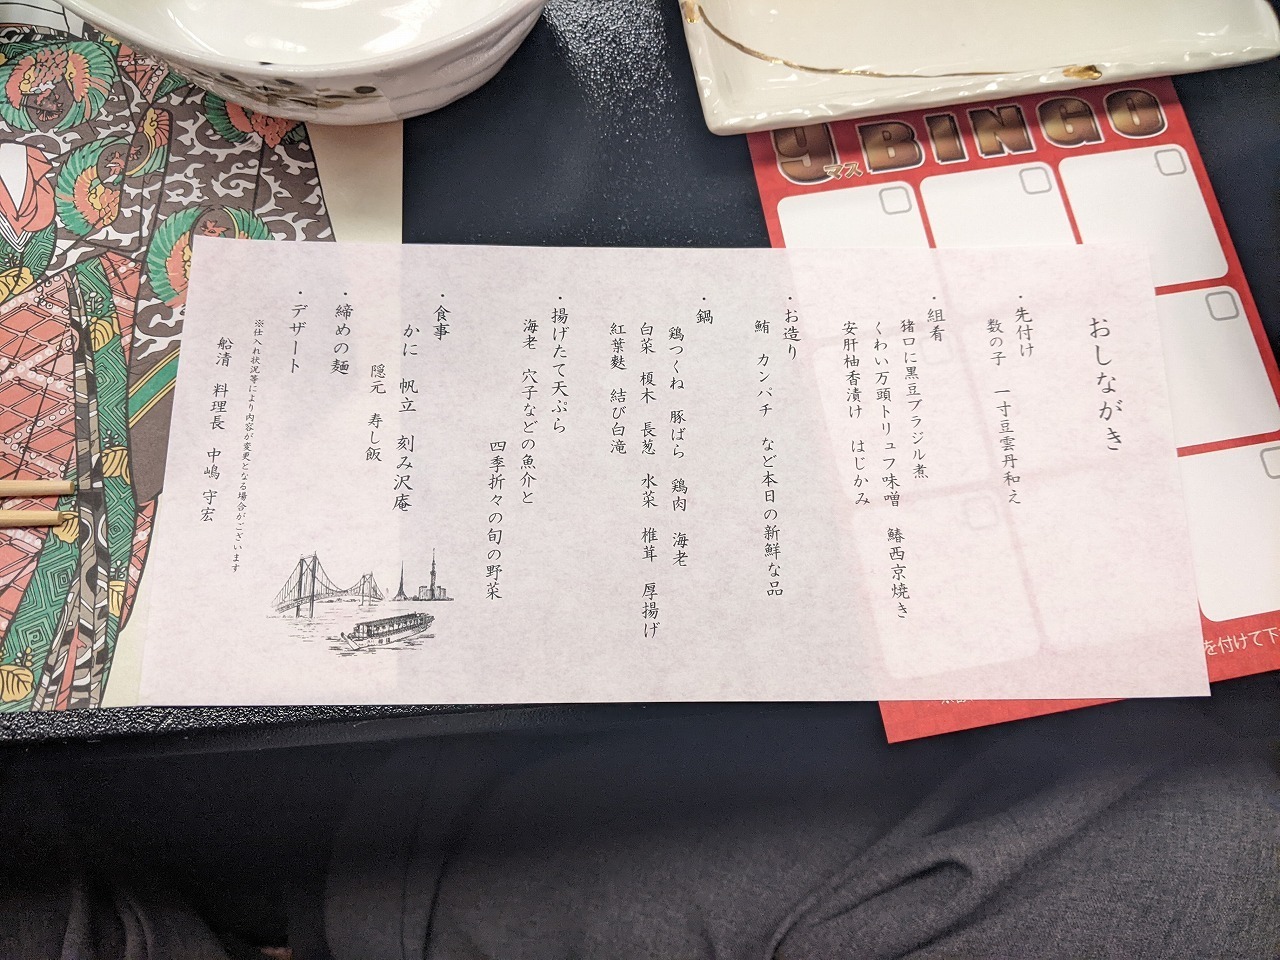 おしながき
・先付け
数の子　一寸豆雲丹和え
・組肴
猪口に黒豆ブラジル煮
くわい万頭トリュフ味噌　鰆西京焼き
安肝柚香漬け　はじかみ
・お造り
鮪　カンパチ　など本日の新鮮な品
・鍋
鶏つくね　豚ばら　鶏肉　海老
白菜　榎木　長葱　水菜　椎茸　厚揚げ
紅葉麩　結び白滝
・揚げたて天ぷら
海老　穴子などの魚介と
四季折々の旬の野菜
・食事
かに　帆立　刻み沢庵
隠元　寿し飯
・締めの麺
・デザート
※仕入れ状況等により内容が変更となる場合がございます
船清　料理長　中嶋　守宏
9マス BINGO
を付けて下